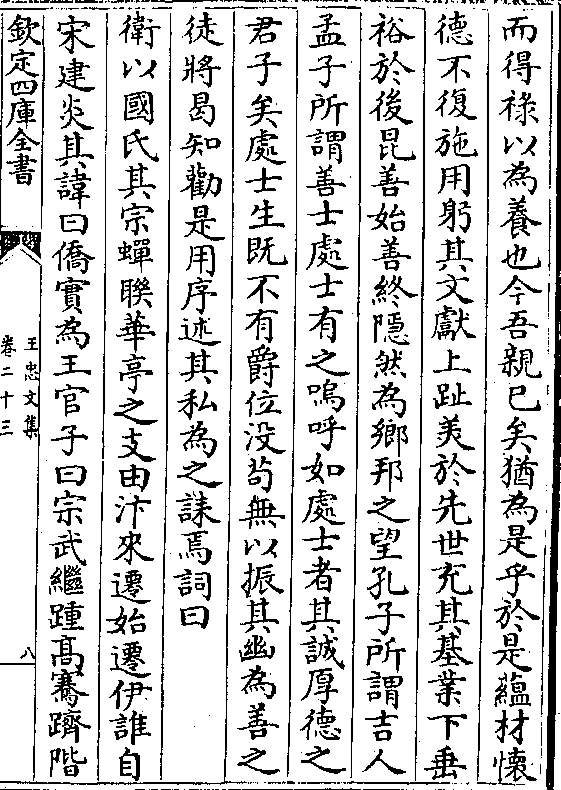 而得祿以為養也今吾親已矣猶為是乎於是蘊材懷
德不復施用躬其文獻上趾美於先世充其基業下垂
裕於後昆善始善終隱然為鄉邦之望孔子所謂吉人
孟子所謂善士處士有之嗚呼如處士者其誠厚德之
君子矣處士生既不有爵位没茍無以振其幽為善之
徒將曷知勸是用序述其私為之誄焉詞曰
衛以國氏其宗蟬聯華亭之支由汴來遷始遷伊誰自
宋建炎其諱曰僑實為王官子曰宗武繼踵高騫躋階
欽定四庫全書
王忠文集
卷二十三
八